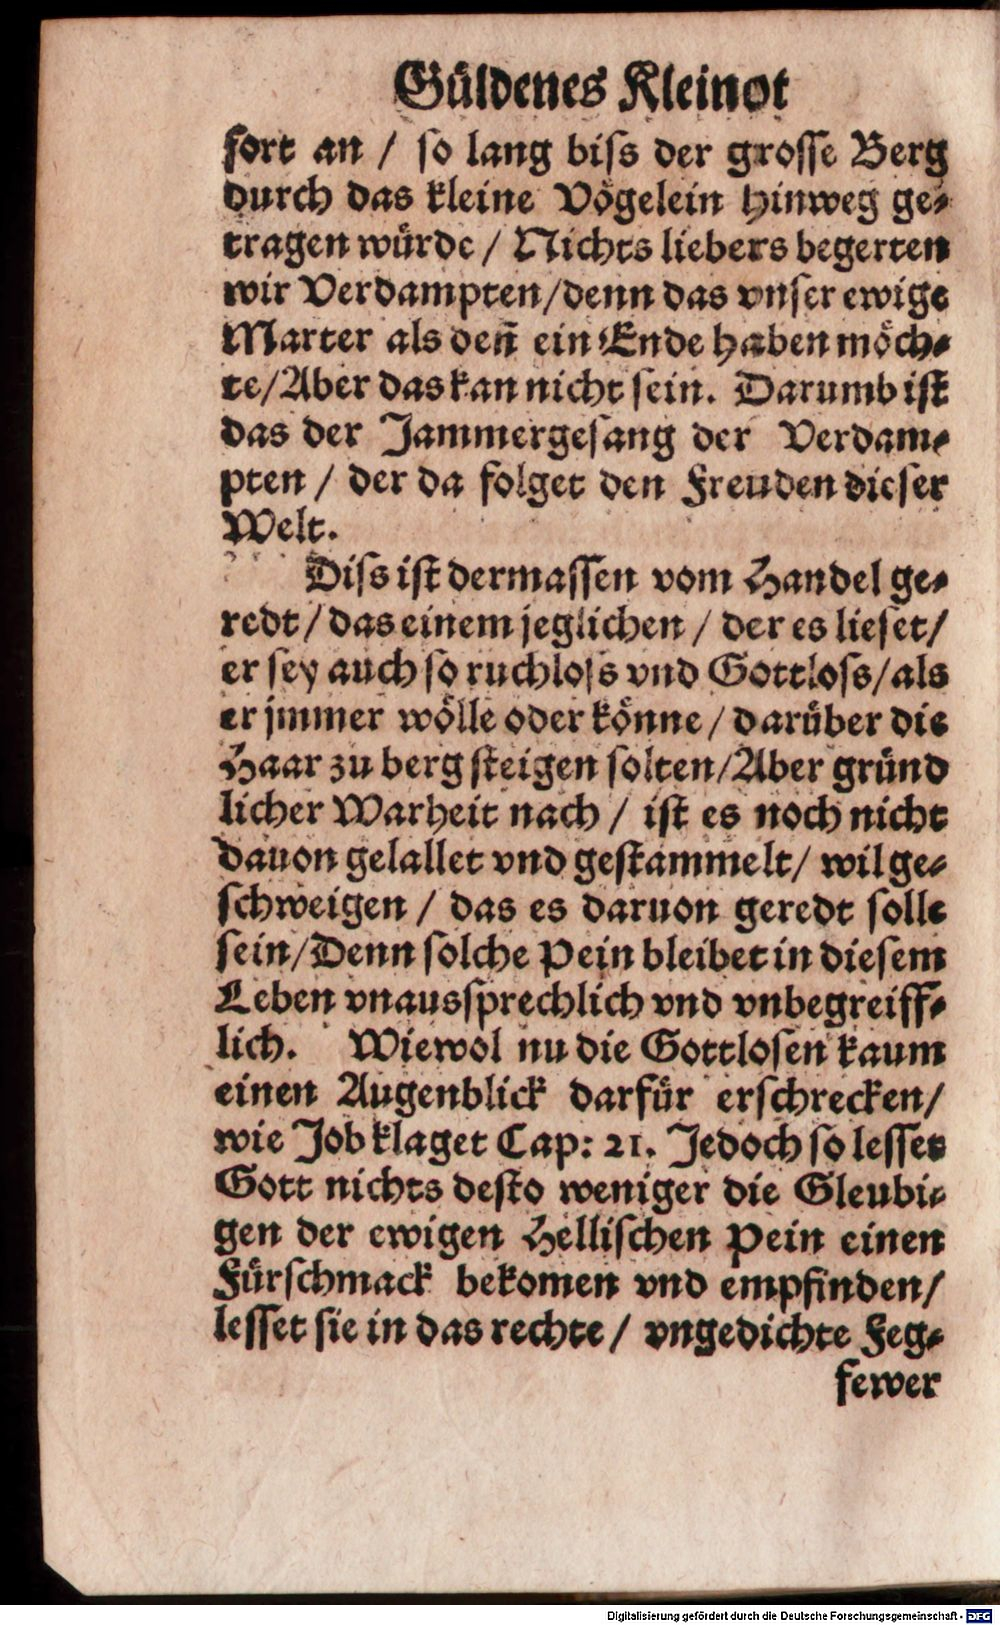 Güldenes Kleinot
fort an / so lang biſs der groſſe Berg
durch das kleine Vögelein hinweg ge-
tragen würde / Nichts liebers begerten
wir Verdampten/denn das vnſer ewige
Marter als deñ ein Ende haben möch-
te/Aber das kan nicht ſein. Darumb iſt
das der Jammergeſang der Verdam-
pten / der da folget den Freuden dieſer
Welt.
Diſs iſt dermaſſen vom Handel ge-
redt / das einem jeglichen / der es lieſet/
er ſey auch ſo ruchloſs vnd Gottloſs/als
er jmmer wölle oder könne / darüber die
Haar zu berg ſteigen ſolten/Aber gründ
licher Warheit nach / iſt es noch nicht
dauon gelallet vnd geſtammelt/ wil ge-
ſchweigen / das es daruon geredt ſolle
ſein/Denn ſolche Pein bleibet in dieſem
Leben vnausſprechlich vnd vnbegreiff-
lich. Wiewol nu die Gottloſen kaum
einen Augenblick darfür erſchrecken/
wie Job klaget Cap: 21. Jedoch ſo leſſet
Gott nichts deſto weniger die Gleubi-
gen der ewigen Helliſchen Pein einen
Fürſchmack bekomen vnd empfinden/
leſſet ſie in das rechte / vngedichte Feg-
fewer
Digitalisierung gefördert durch die Deutsche Forschungsgemeinschaft - DFG